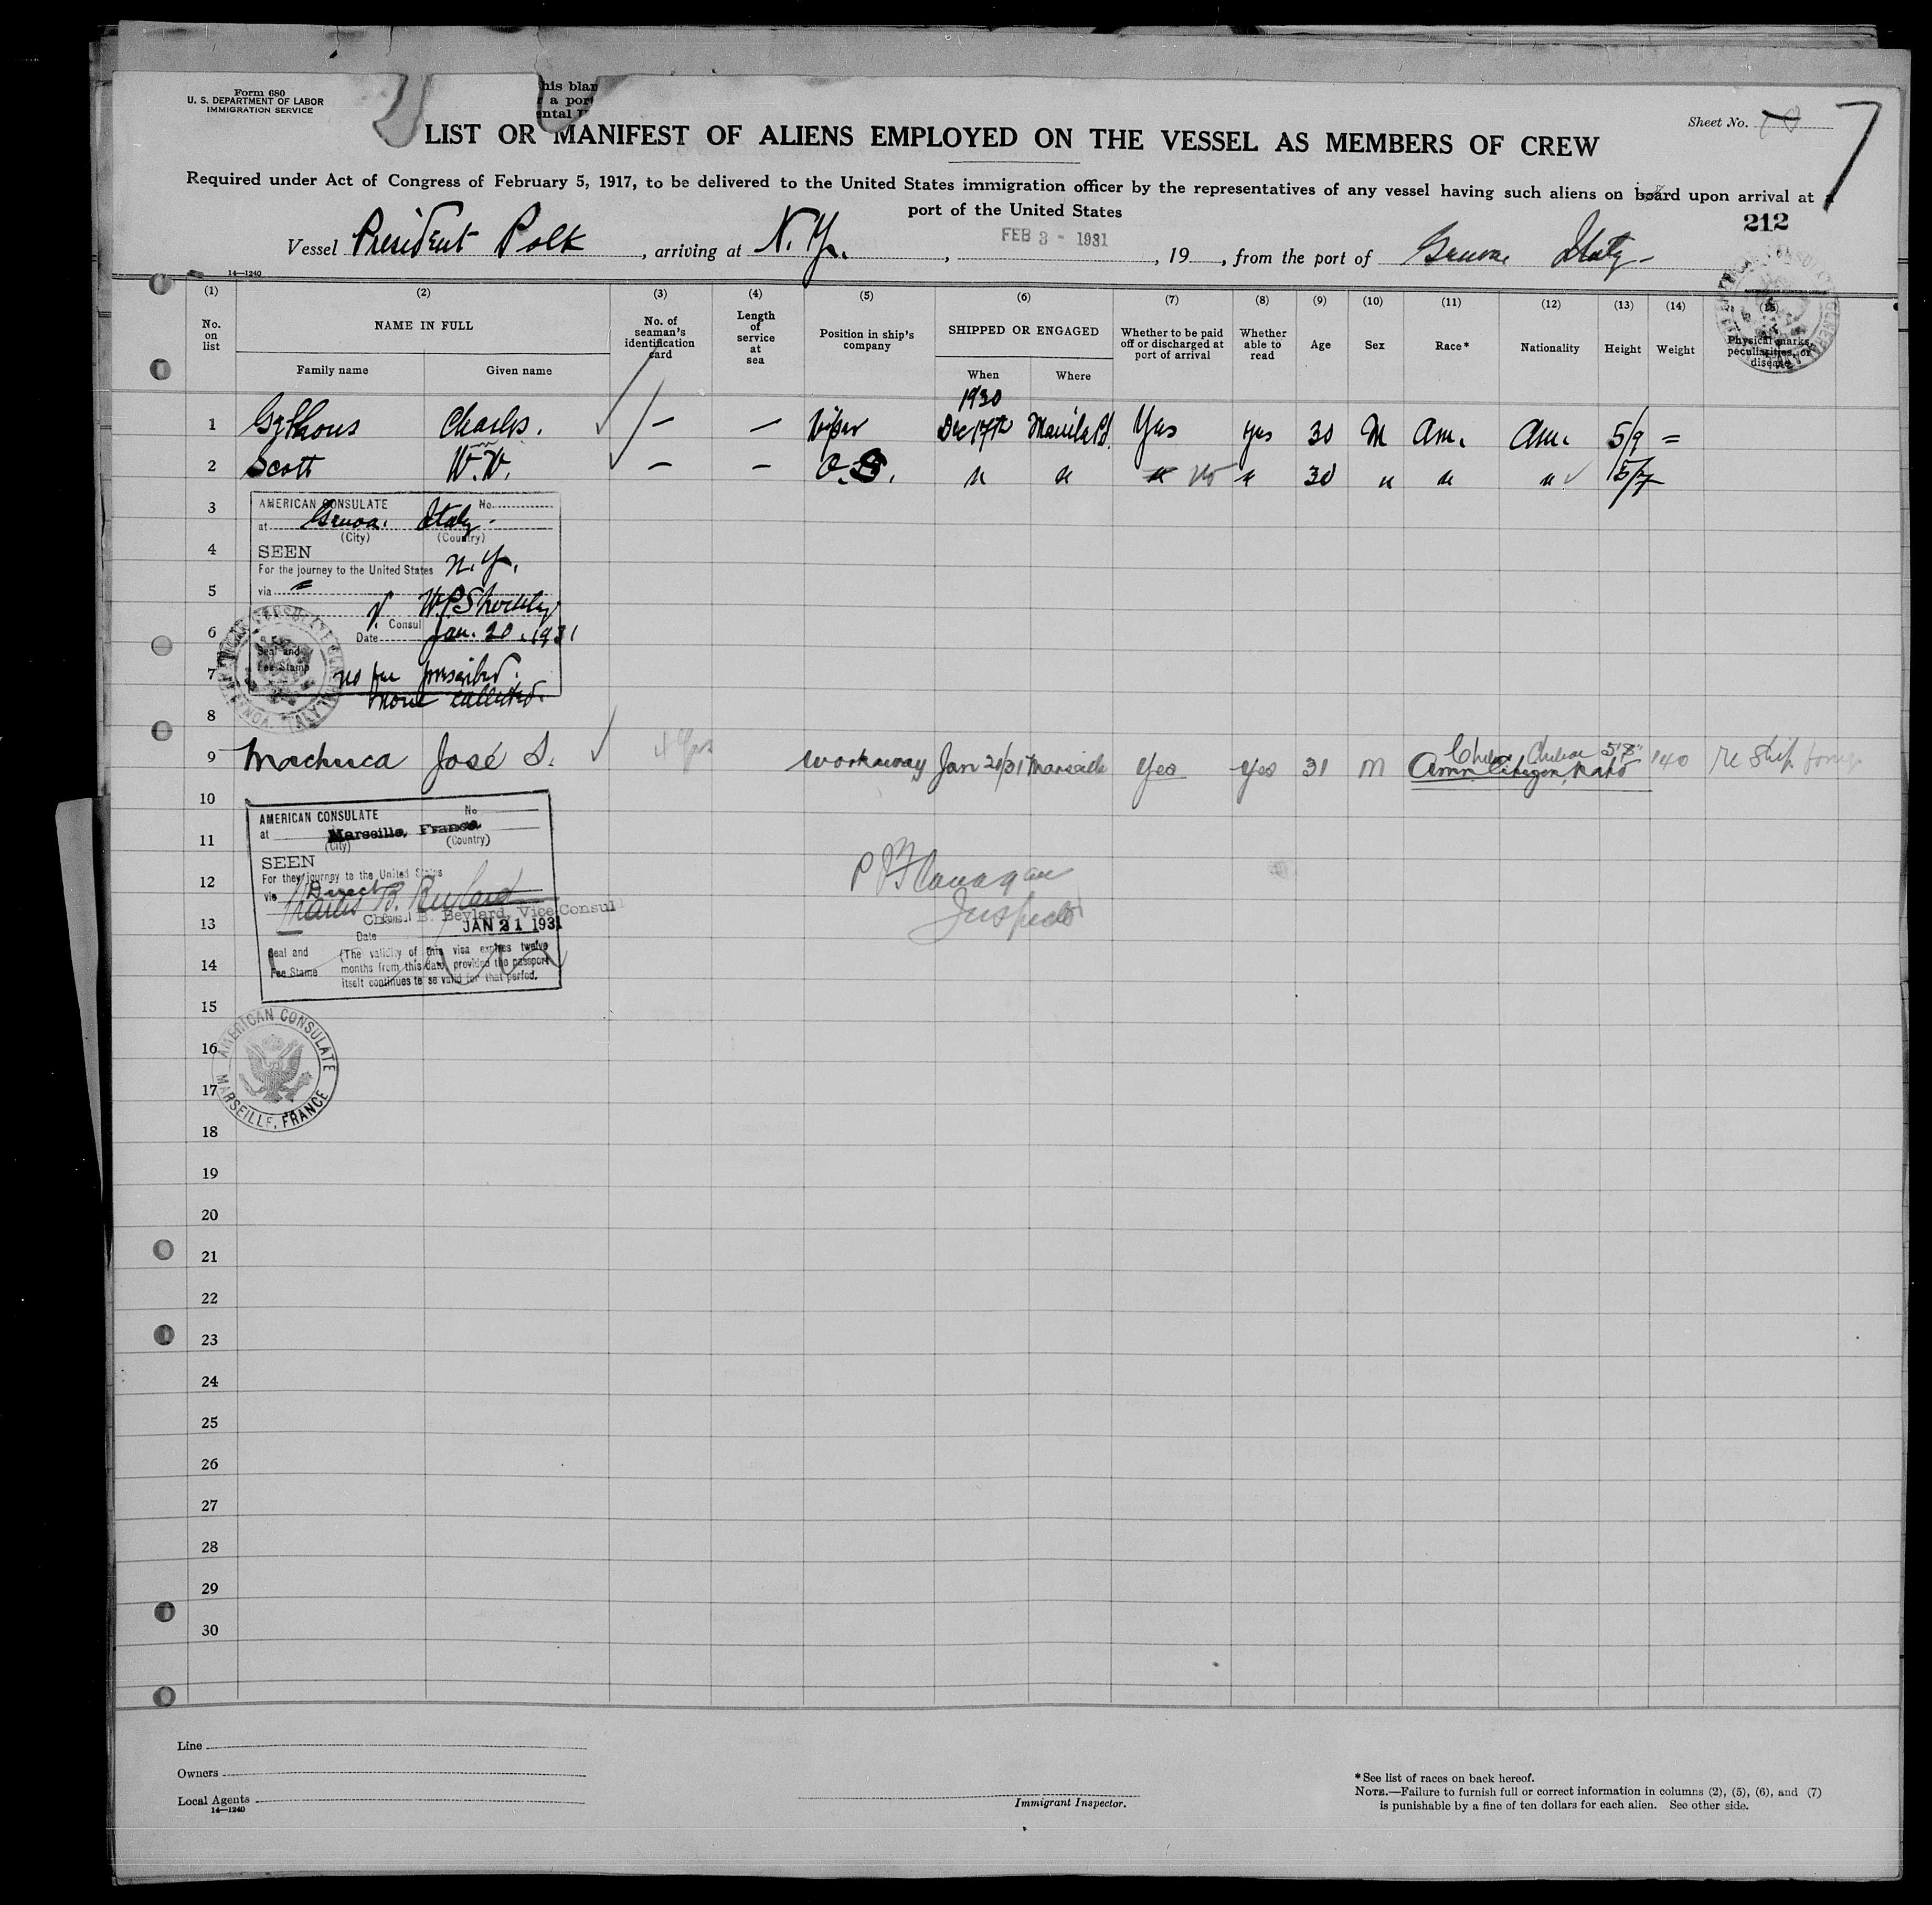 Form 680
U. S. DEPARTMENT OF LABOR
IMMIGRATION SERVICE
his blan
a por
ental
Sheet No.
7
LIST OR MANIFEST OF ALIENS EMPLOYED ON THE VESSEL AS MEMBERS OF CREW
Required under Act of Congress of February 5, 1917, to be delivered to the United States immigration officer by the representatives of any vessel having such aliens on board upon arrival at a
port of the United States
212
Vessel President Polk, arriving at N. Y., FEB 3 - 1931, 19, from the port of Genoa Italy-
14—1240
(1) (2) (3) (4) (5) (6) (7) (8) (9) (10) (11) (12) (13) (14) (15)
No. on list
NAME IN FULL
Family name
Given name
No. of seaman's identification card
Length of service at sea
Position in ship's company
SHIPPED OR ENGAGED
When
Where
Whether to be paid off or discharged at port of arrival
Whether able to read
Age
Sex
Race*
Nationality
Height
Weight
Physical marks, peculiarities, or disease
1930
1 Charles. — — Wiper Dec 17th Manila Yes yes 30 M Am. Am. 5/9 =
2 Scott W.W. — — O.S. " " " No " 30 " " " 5/7
3
AMERICAN CONSULATE No.
at Genoa. Italy.
(City) (Country)
4
SEEN
For the journey to the United States N.Y.
5
via "
V. Consul
6
Date Jan. 20. 1931
Seal and
Fee Stamp
7
no fee prescribed.
none collected.
AMERICAN CONSULATE GENERAL GENOA, ITALY
8
9 Machuca José S. 4 yrs workaway Jan 21/31 Marseille Yes Yes 31 M Amn Citizen Chile Chilean 5'8" 140 Re Ship foreign
10
AMERICAN CONSULATE No
at Marseille, France
(City) (Country)
11
SEEN
For the journey to the United States
12
via Direct
Charles B. Beylard
Chas. B. Beylard, Vice Consul
13
Date JAN 21 1931
Seal and
Fee Stame
(The validity of this visa expires twelve
months from this date, provided the passport
itself continues to se valid for that period.
14
P Flanagan
Inspector
15
16
17
AMERICAN CONSULATE
MARSEILLE, FRANCE
18
19
20
21
22
23
24
25
26
27
28
29
30
Line
Owners
Local Agents
14—1240
Immigrant Inspector.
*See list of races on back hereof.
NOTE.—Failure to furnish full or correct information in columns (2), (5), (6), and (7)
is punishable by a fine of ten dollars for each alien. See other side.